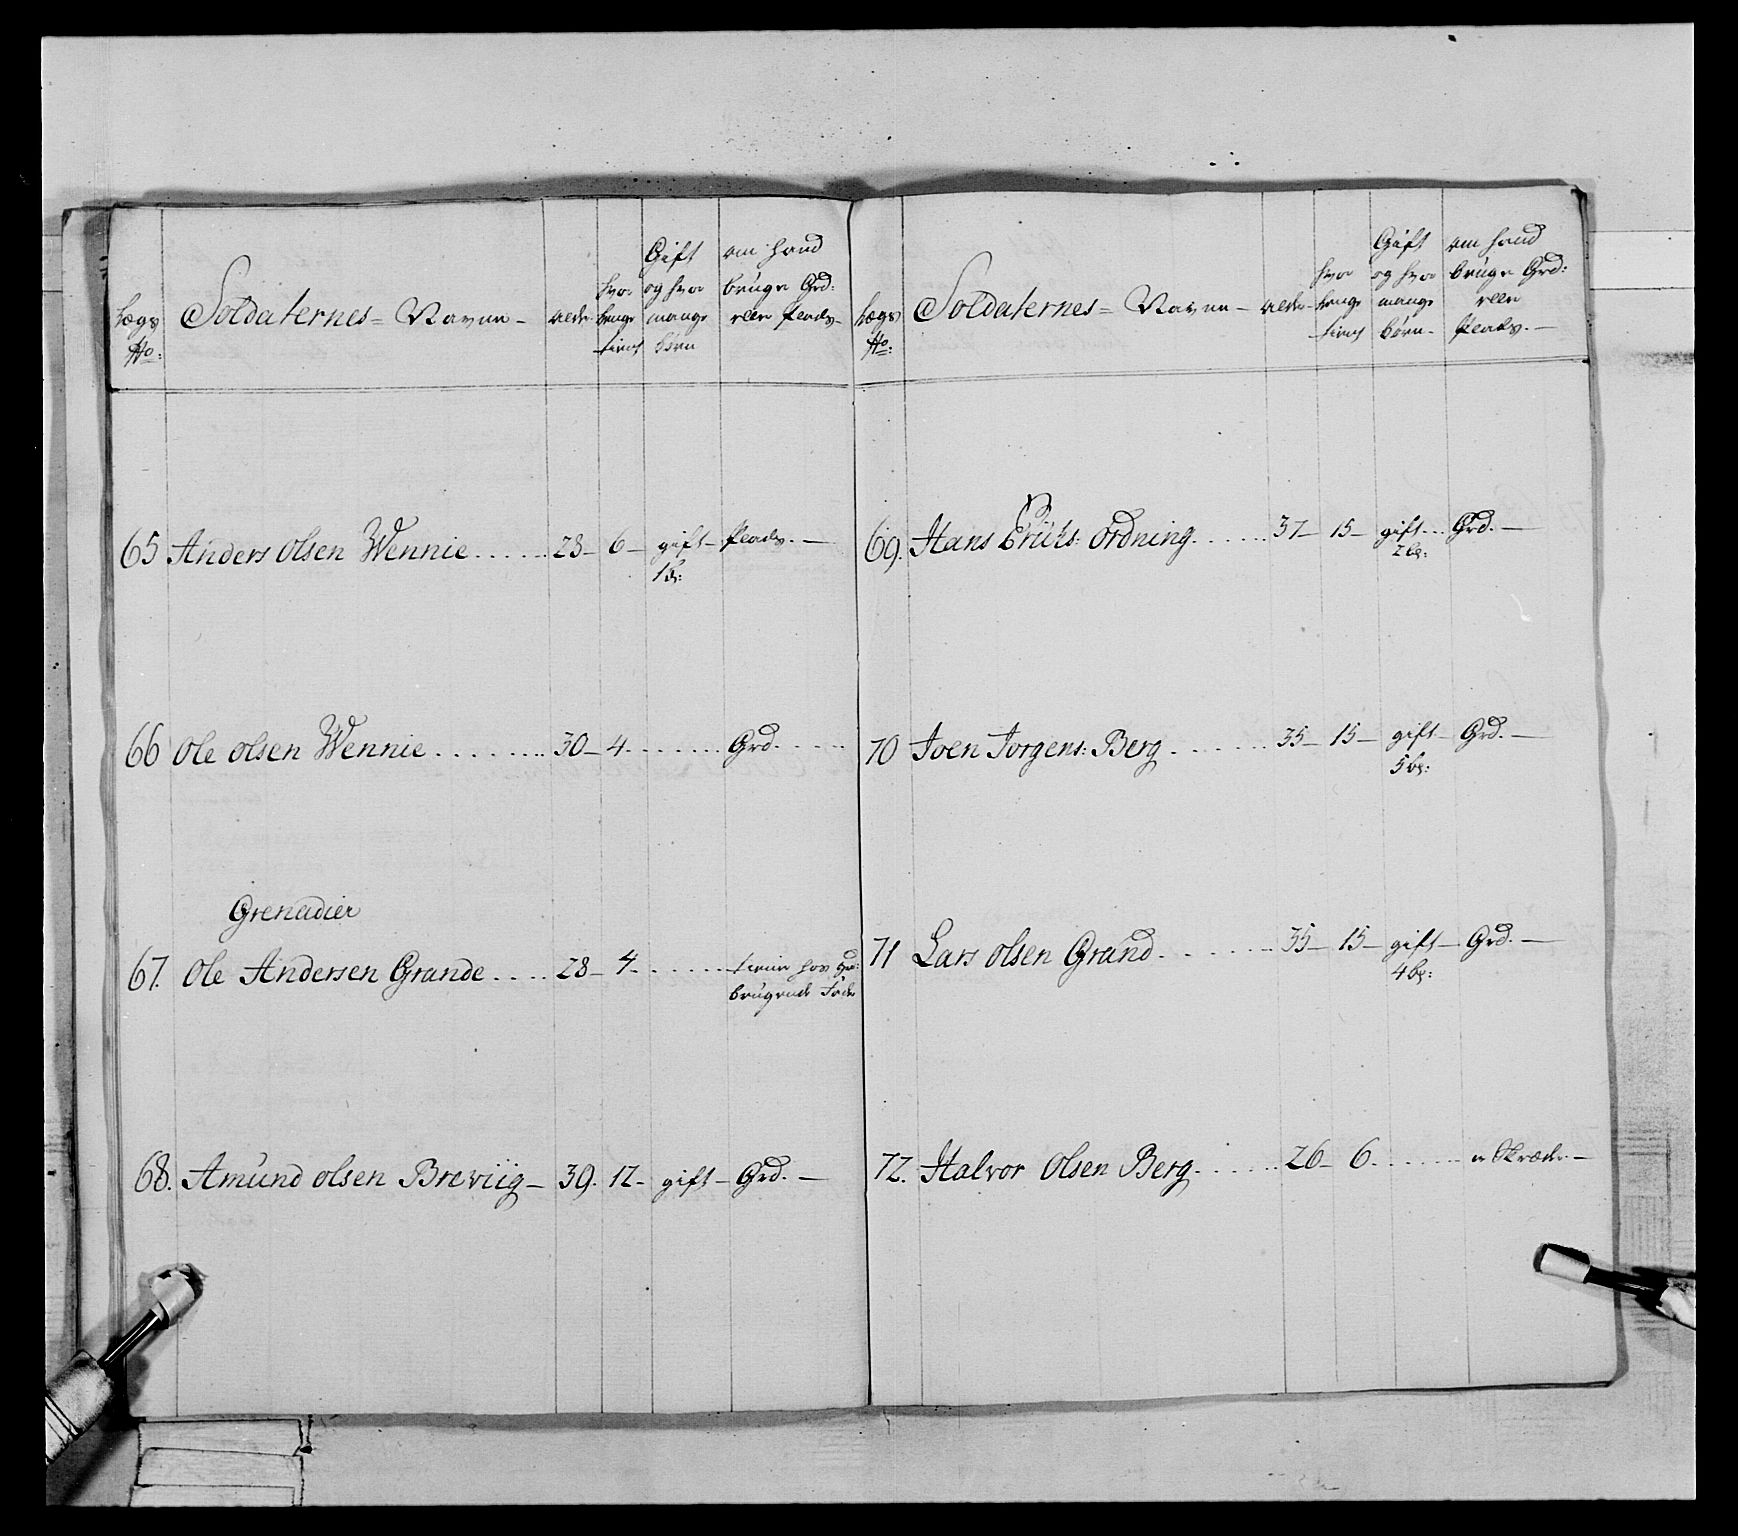 Lægs No:
Soldaternes = Navne -
Alder
hvor længe tient
Gift og hvor mange børn
om hand bruge Grd: eller Plads -
65 Anders Olsen Wennie ...... 28 - 6 - gift - Plads. -
1 b:
66 Ole Olsen Wennie ........ 30 - 4 ....... Grd. .....
Grenadier
67. Ole Andersen Grande .... 28 - 4 ...... tiener hos Gr:
brugende Fader
68. Amund Olsen Breviig - 39. 12 - gift - Grd. -
Lægs No:
Soldaternes = Navne -
Alder -
hvor længe tient
Gift og hvor mange børn -
om hand bruge Grd: eller Plads. -
69. Hans Erichs: Ordning ...... 37 - 15 - gift ... Grd. -
2 b:
70 Joen Jørgens: Berg ....... 35 - 15 - gift - Grd. -
5 b:
71 Lars Olsen Grand ....... 35 - 15 - gift - Grd. -
4 b:
72. Halvor Olsen Berg ...... 26 - 6 ...... er Skræder -